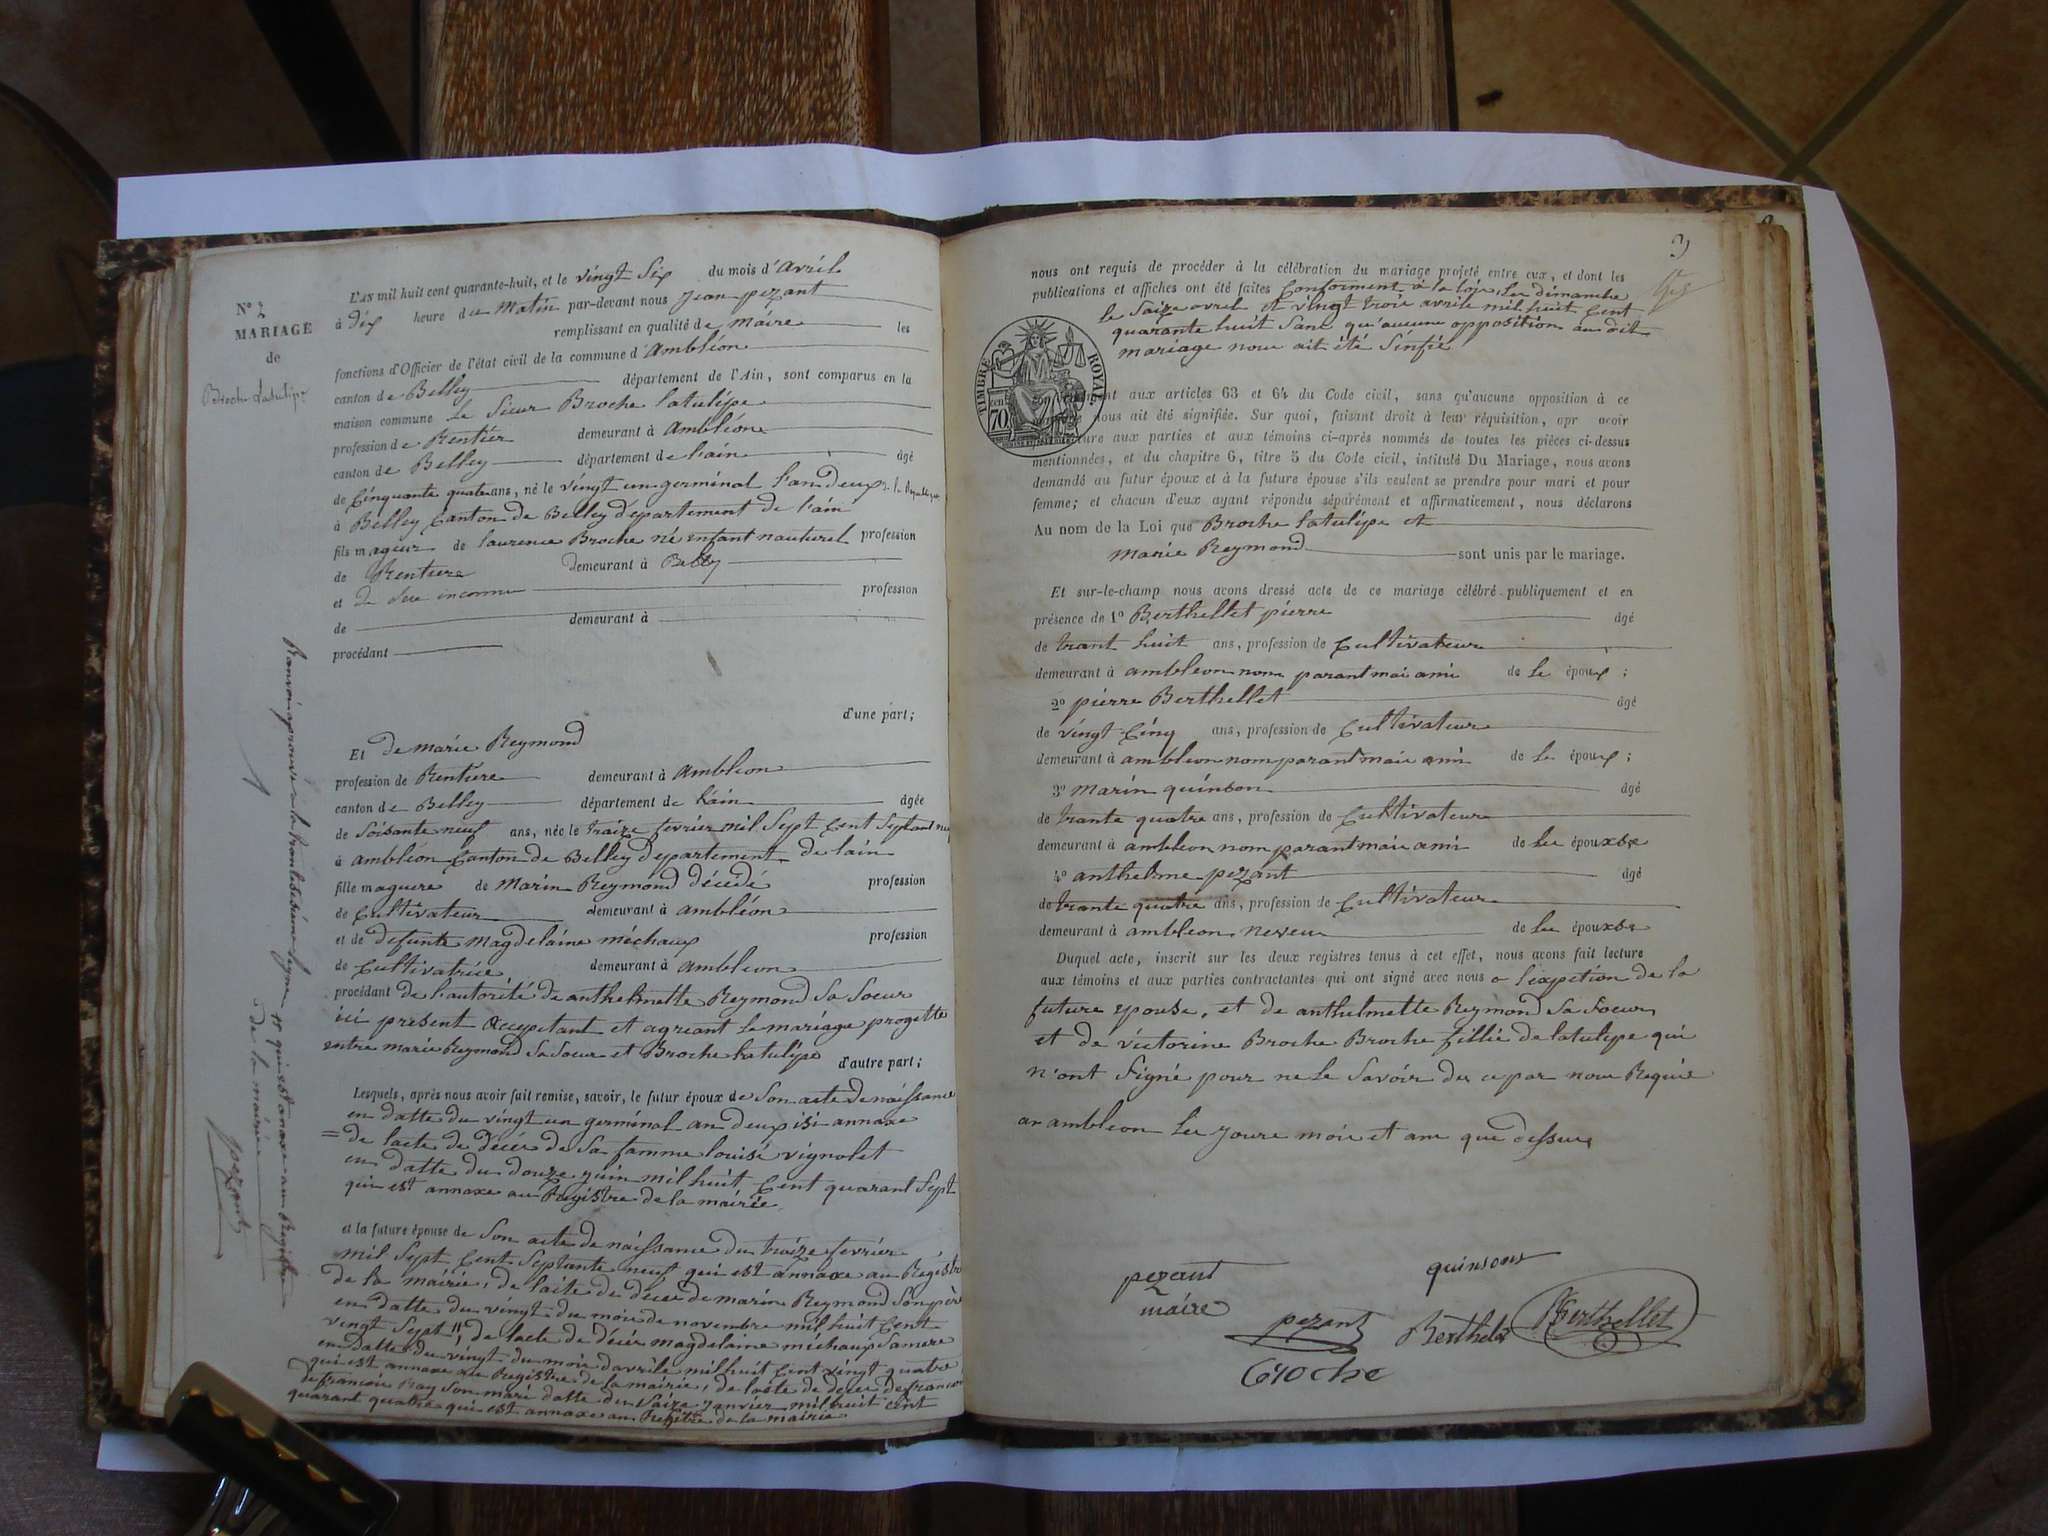 N° 2
MARIAGE
de
Broche Latulipe
L'AN mil huit cent quarante-huit, et le vingt Six du mois d'avril
à dix heure du Matin par-devant nous Jean pezant
remplissant en qualité de Máire les
fonctions d'Officier de l'état civil de la commune d'Ambléon
canton de Belley département de l'Ain, sont comparus en la
maison commune Le Sieur Broche latulipe
profession de Rentier demeurant à Ambléon
canton de Belley département de l'ain âgé
de Cinquante quatre ans, né le vingt un germinal l'an deux
à Belley Canton de Belley département de l'ain
fils mageur de laurence Broche né enfant nauturel profession
de Rentiere demeurant à Belley
et de pere inconnu profession
de demeurant à
procédant
d'une part;
Et de marie Reymond
profession de Rentiere demeurant à ambleon
canton de Belley département de l'ain âgée
de Soisante neuf ans, née le traize fevrier mil Sept Cent Septant neuf
à ambléon Canton de Belley departement de lain
fille mageure de Marin Reymond décédé profession
de Cultivateur demeurant à ambléon
et de defunte magdelaine méchaux profession
de Cultivatrice demeurant à ambleon
procédant de l'autorité de anthelmette Reymond Sa Soeur
ici present acceptant et agreant le mariage progetté
entre marie Reymond Sa Soeur et Broche Latulipe d'autre part;
Lesquels, après nous avoir fait remise, savoir, le futur époux de Son acte de náissance
en datte du vingt un germinal an deux isi annaxe
= de lacte de décès de Sa famme louise vignolet
en datte du douze juin mil huit Cent quarant Sept
qui est annaxe au Registre de la máirie
et la future épouse de Son acte de náissance du traize fevrier
mil Sept Cent Septante neuf qui est annaxe au Régistre
de la máirie, de lacte de décès de marin Reymond Son père
en datte du vingt du mois de novembre mil huit Cent
vingt Sept, de lacte de décès magdelaine méchaux Samere
en datte du vingt du mois davrile mil huit Cent vingt quatre
qui est annaxe au Registre de la mairie, de lacte de décès
de francois Ray Son mari datte du Saize janvier mil huit Cent
quarant quatre qui est annaxe au Registre de la mairie
qui est anaxe au Registre
de la máirie
pezant
3
nous ont requis de procéder à la célébration du mariage projeté entre eux, et dont les
publications et affiches ont été faites Conforment à la loix, les dimanche
le Saize avril et vingt trois avrile mil huit Cent
quarante huit Sans qu'aucune opposition au dit
mariage nous ait été Sinfié
TIMBRE ROYAL
70
aux articles 63 et 64 du Code civil, sans qu'aucune opposition à ce
nous ait été signifiée. Sur quoi, faisant droit à leur réquisition, apr avoir
aux parties et aux témoins ci-après nommés de toutes les pièces ci-dessus
mentionnées, et du chapitre 6, titre 5 du Code civil, intitulé Du Mariage, nous avons
demandé au futur époux et à la future épouse s'ils veulent se prendre pour mari et pour
femme; et chacun d'eux ayant répondu séparément et affirmativement, nous déclarons
Au nom de la Loi que Broche latulipe et
marie Reymond sont unis par le mariage.
Et sur-le-champ nous avons dressé acte de ce mariage célébré publiquement et en
présence de 1° Berthellet pierre âgé
de trant huit ans, profession de Cultivateur
demeurant à ambleon nom parant mais ami de le époux ;
2° pierre Berthellet âgé
de vingt Cinq ans, profession de Cultivateur
demeurant à ambleon nom parant mais ami de les époux ;
3° marin quinson âgé
de trante quatre ans, profession de Cultivateur
demeurant à ambleon nom parant mais ami de les époux
4° anthelme pezant âgé
de trante quatre ans, profession de Cultivateur
demeurant à ambleon neveu de les époux
Duquel acte, inscrit sur les deux registres tenus à cet effet, nous avons fait lecture
aux témoins et aux parties contractantes qui ont signé avec nous a l'exaption de la
future epouse, et de anthelmette Reymond Sa Soeur
et de victorine Broche Broche fillie de latulipe qui
n'ont Signé pour ne le Savoir de ce par nous Requis
an ambleon les joure mois et ans que dessus
pezant
máire
quinson
pezant
Berthelet
Berthellet
Broche